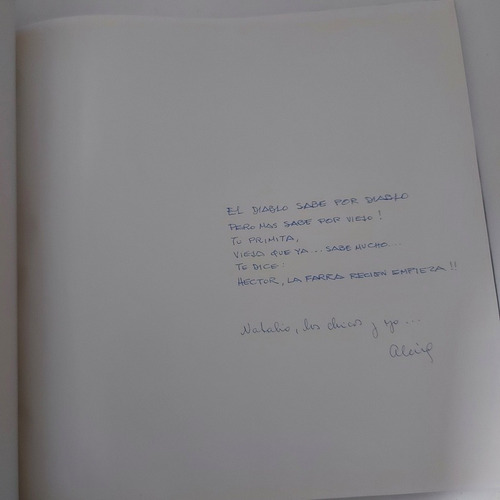 EL DIABLO SABE POR DIABLO
PERO MAS SABE POR VIEJO!
TU PRIMITA,
VIEJA QUE YA... SABE MUCHO...
TE DICE:
HECTOR, LA FARRA RECIEN EMPIEZA!!
Natalio, los chicos y yo...